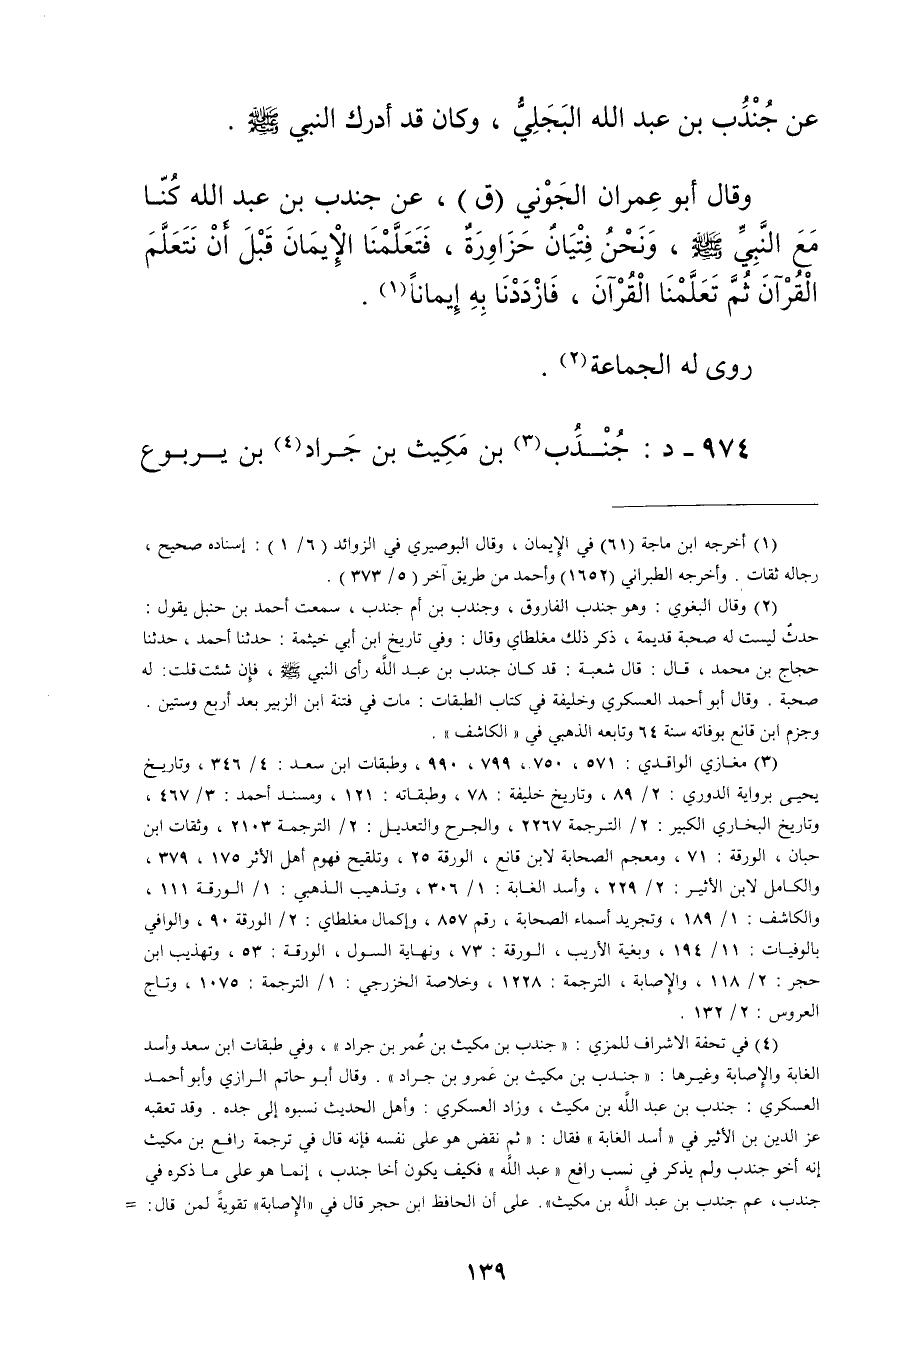 عن جُنْدُب بن عبد الله البَجَلِيُّ ، وكان قد أدرك النبي ﷺ .
وقال أبو عِمران الجَوْني (ق) ، عن جندب بن عبد الله كُنّا
مَعَ النَّبِيِّ ﷺ ، وَنَحْنُ فِتْيَانٌ حَزَاوِرَةٌ ، فَتَعَلَّمْنَا الْإِيمَانَ قَبْلَ أَنْ نَتَعَلَّمَ
الْقُرْآنَ ثُمَّ تَعَلَّمْنَا الْقُرْآنَ ، فَازْدَدْنَا بِهِ إِيماناً(١) .
روى له الجماعة(٢) .
٩٧٤ - د : جُنْدُب(٣) بن مَكِيث بن جَراد(٤) بن يربوع
(١) أخرجه ابن ماجة (٦١) في الإيمان ، وقال البوصيري في الزوائد ( ٦/ ١ ) : إسناده صحيح ،
رجاله ثقات . وأخرجه الطبراني (١٦٥٢) وأحمد من طريق آخر ( ٥/ ٣٧٣ ) .
(٢) وقال البغوي : وهو جندب الفاروق ، وجندب بن أم جندب ، سمعت أحمد بن حنبل يقول :
حدثٌ ليست له صحبة قديمة ، ذكر ذلك مغلطاي وقال : وفي تاريخ ابن أبي خيثمة : حدثنا أحمد ، حدثنا
حجاج بن محمد ، قال : قال شعبة : قد كان جندب بن عبد اللَّه رأى النبي ﷺ ، فإن شئت قلت: له
صحبة . وقال أبو أحمد العسكري وخليفة في كتاب الطبقات : مات في فتنة ابن الزبير بعد أربع وستين .
وجزم ابن قانع بوفاته سنة ٦٤ وتابعه الذهبي في « الكاشف » .
(٣) مغازي الواقدي : ٥٧١ ، ٧٥٠، ٧٩٩ ، ٩٩٠ ، وطبقات ابن سعد : ٤/ ٣٤٦ ، وتاريخ
يحيى برواية الدوري : ٢/ ٨٩ ، وتاريخ خليفة : ٧٨ ، وطبقاته : ١٢١ ، ومسند أحمد : ٣/ ٤٦٧ ،
وتاريخ البخاري الكبير : ٢/ الترجمة ٢٢٦٧ ، والجرح والتعديل : ٢/ الترجمة ٢١٠٣ ، وثقات ابن
حبان ، الورقة : ٧١ ، ومعجم الصحابة لابن قانع ، الورقة ٢٥ ، وتلقيح فهوم أهل الأثر ١٧٥ ، ٣٧٩ ،
والكامل لابن الأثير : ٢/ ٢٢٩ ، وأسد الغابة : ١/ ٣٠٦ ، وتذهيب الذهبي : ١/ الورقة ١١١ ،
والكاشف : ١/ ١٨٩ ، وتجريد أسماء الصحابة ، رقم ٨٥٧ ، وإكمال مغلطاي : ٢/ الورقة ٩٠ ، والوافي
بالوفيات : ١١/ ١٩٤ ، وبغية الأريب ، الورقة : ٧٣ ، ونهاية السول ، الورقة : ٥٣ ، وتهذيب ابن
حجر : ٢/ ١١٨ ، والإصابة ، الترجمة : ١٢٢٨ ، وخلاصة الخزرجي : ١/ الترجمة : ١٠٧٥ ، وتاج
العروس : ٢/ ١٣٢ .
(٤) في تحفة الاشراف للمزي : « جندب بن مكيث بن عُمر بن جراد » ، وفي طبقات ابن سعد وأسد
الغابة والإصابة وغيرها : « جندب بن مكيث بن عَمرو بن جراد » . وقال أبو حاتم الرازي وأبو أحمد
العسكري : جندب بن عبد اللَّه بن مكيث ، وزاد العسكري : وأهل الحديث نسبوه إلى جده . وقد تعقبه
عز الدين بن الأثير في « أسد الغابة » فقال : « ثم نقض هو على نفسه فإنه قال في ترجمة رافع بن مكيث
إنه أخو جندب ولم يذكر في نسب رافع « عبد اللَّه » فكيف يكون أخا جندب ، إنما هو على ما ذكره في
جندب، عم جندب بن عبد اللَّه بن مكيث». على أن الحافظ ابن حجر قال في «الإصابة» تقويةً لمن قال: =
١٣٩